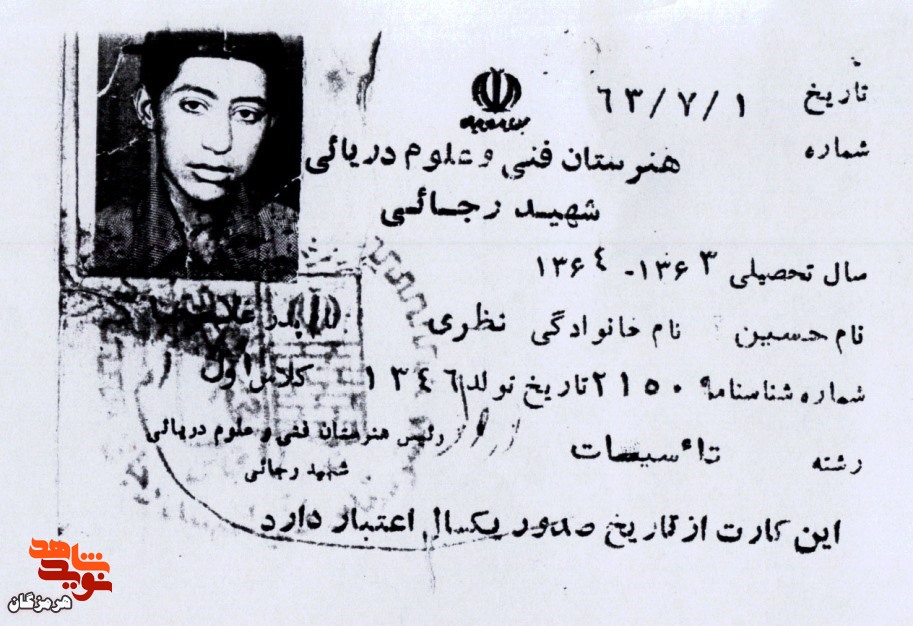 تاریخ ٦٣/٧/١
شماره
جمهوری اسلامی ایران
هنرستان فنی و علوم دریائی
شهید رجائی
سال تحصیلی ١٣۶٣-١٣۶٤
نام حسین نام خانوادگی نظری نام پدر
شماره شناسنامه ٢١٥٠٩ تاریخ تولد ١٣٤٦ کلاس اول
رشته تاءسیسات
رئیس هنرستان فنی و علوم دریائی
شهید رجائی
این کارت از تاریخ صدور یکسال اعتبار دارد
نوید شاهد
هرمزگان